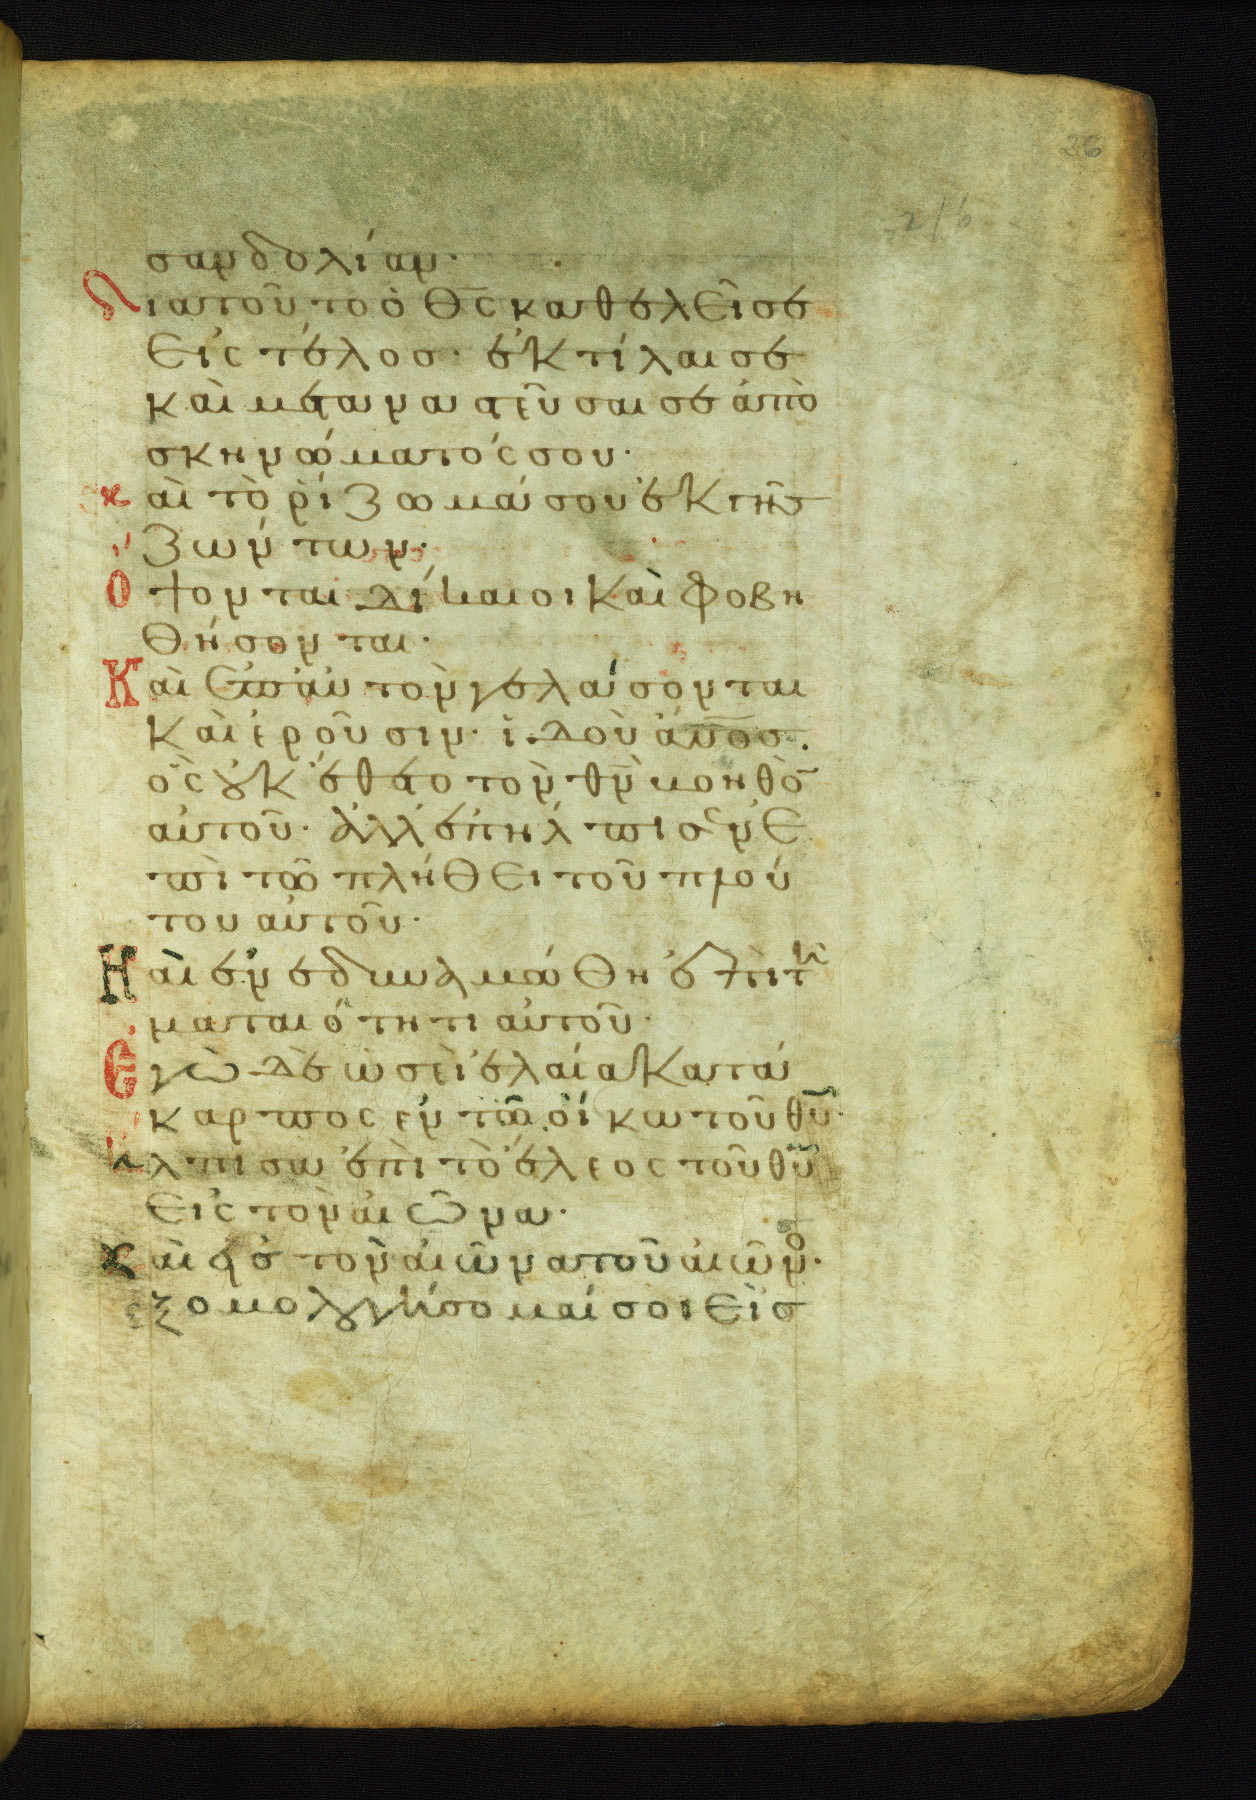 26
216
σαν δολίαν·
Διατοῦτο ὁ θς καθελεῖ σε
εἰς τέλος· ἐκτίλαι σε
καὶ μεταναστεῦσαι σε ἀπὸ
σκηνώματός σου·
καὶ τὸ ῥίζωμά σου ἐκ γῆς
ζώντων·
Ὄψονται δίκαιοι καὶ φοβη
θήσονται·
Καὶ ἐπ' αὐτὸν γελάσονται
καὶ ἐροῦσιν· ἰδοὺ ἄνος·
ὃς οὐκ ἔθετο τὸν θν βοηθὸ
αὐτοῦ· ἀλλ' ἐπήλπισεν ἐ
πὶ τῶ πλήθει τοῦ πλού
του αὐτοῦ·
Καὶ ἐνεδυναμώθη ἐπὶ τῆ
ματαιότητι αὐτοῦ·
Ἐγὼ δὲ ὡσεὶ ἐλαία κατά
καρπος ἐν τῶ οἴκω τοῦ θυ·
ἤλπισα ἐπὶ τὸ ἔλεος τοῦ θυ
εἰς τὸν αἰῶνα·
καὶ εἰς τὸν αἰῶνα τοῦ αἰῶνο·
ἐξομολογήσομαί σοι εἰς